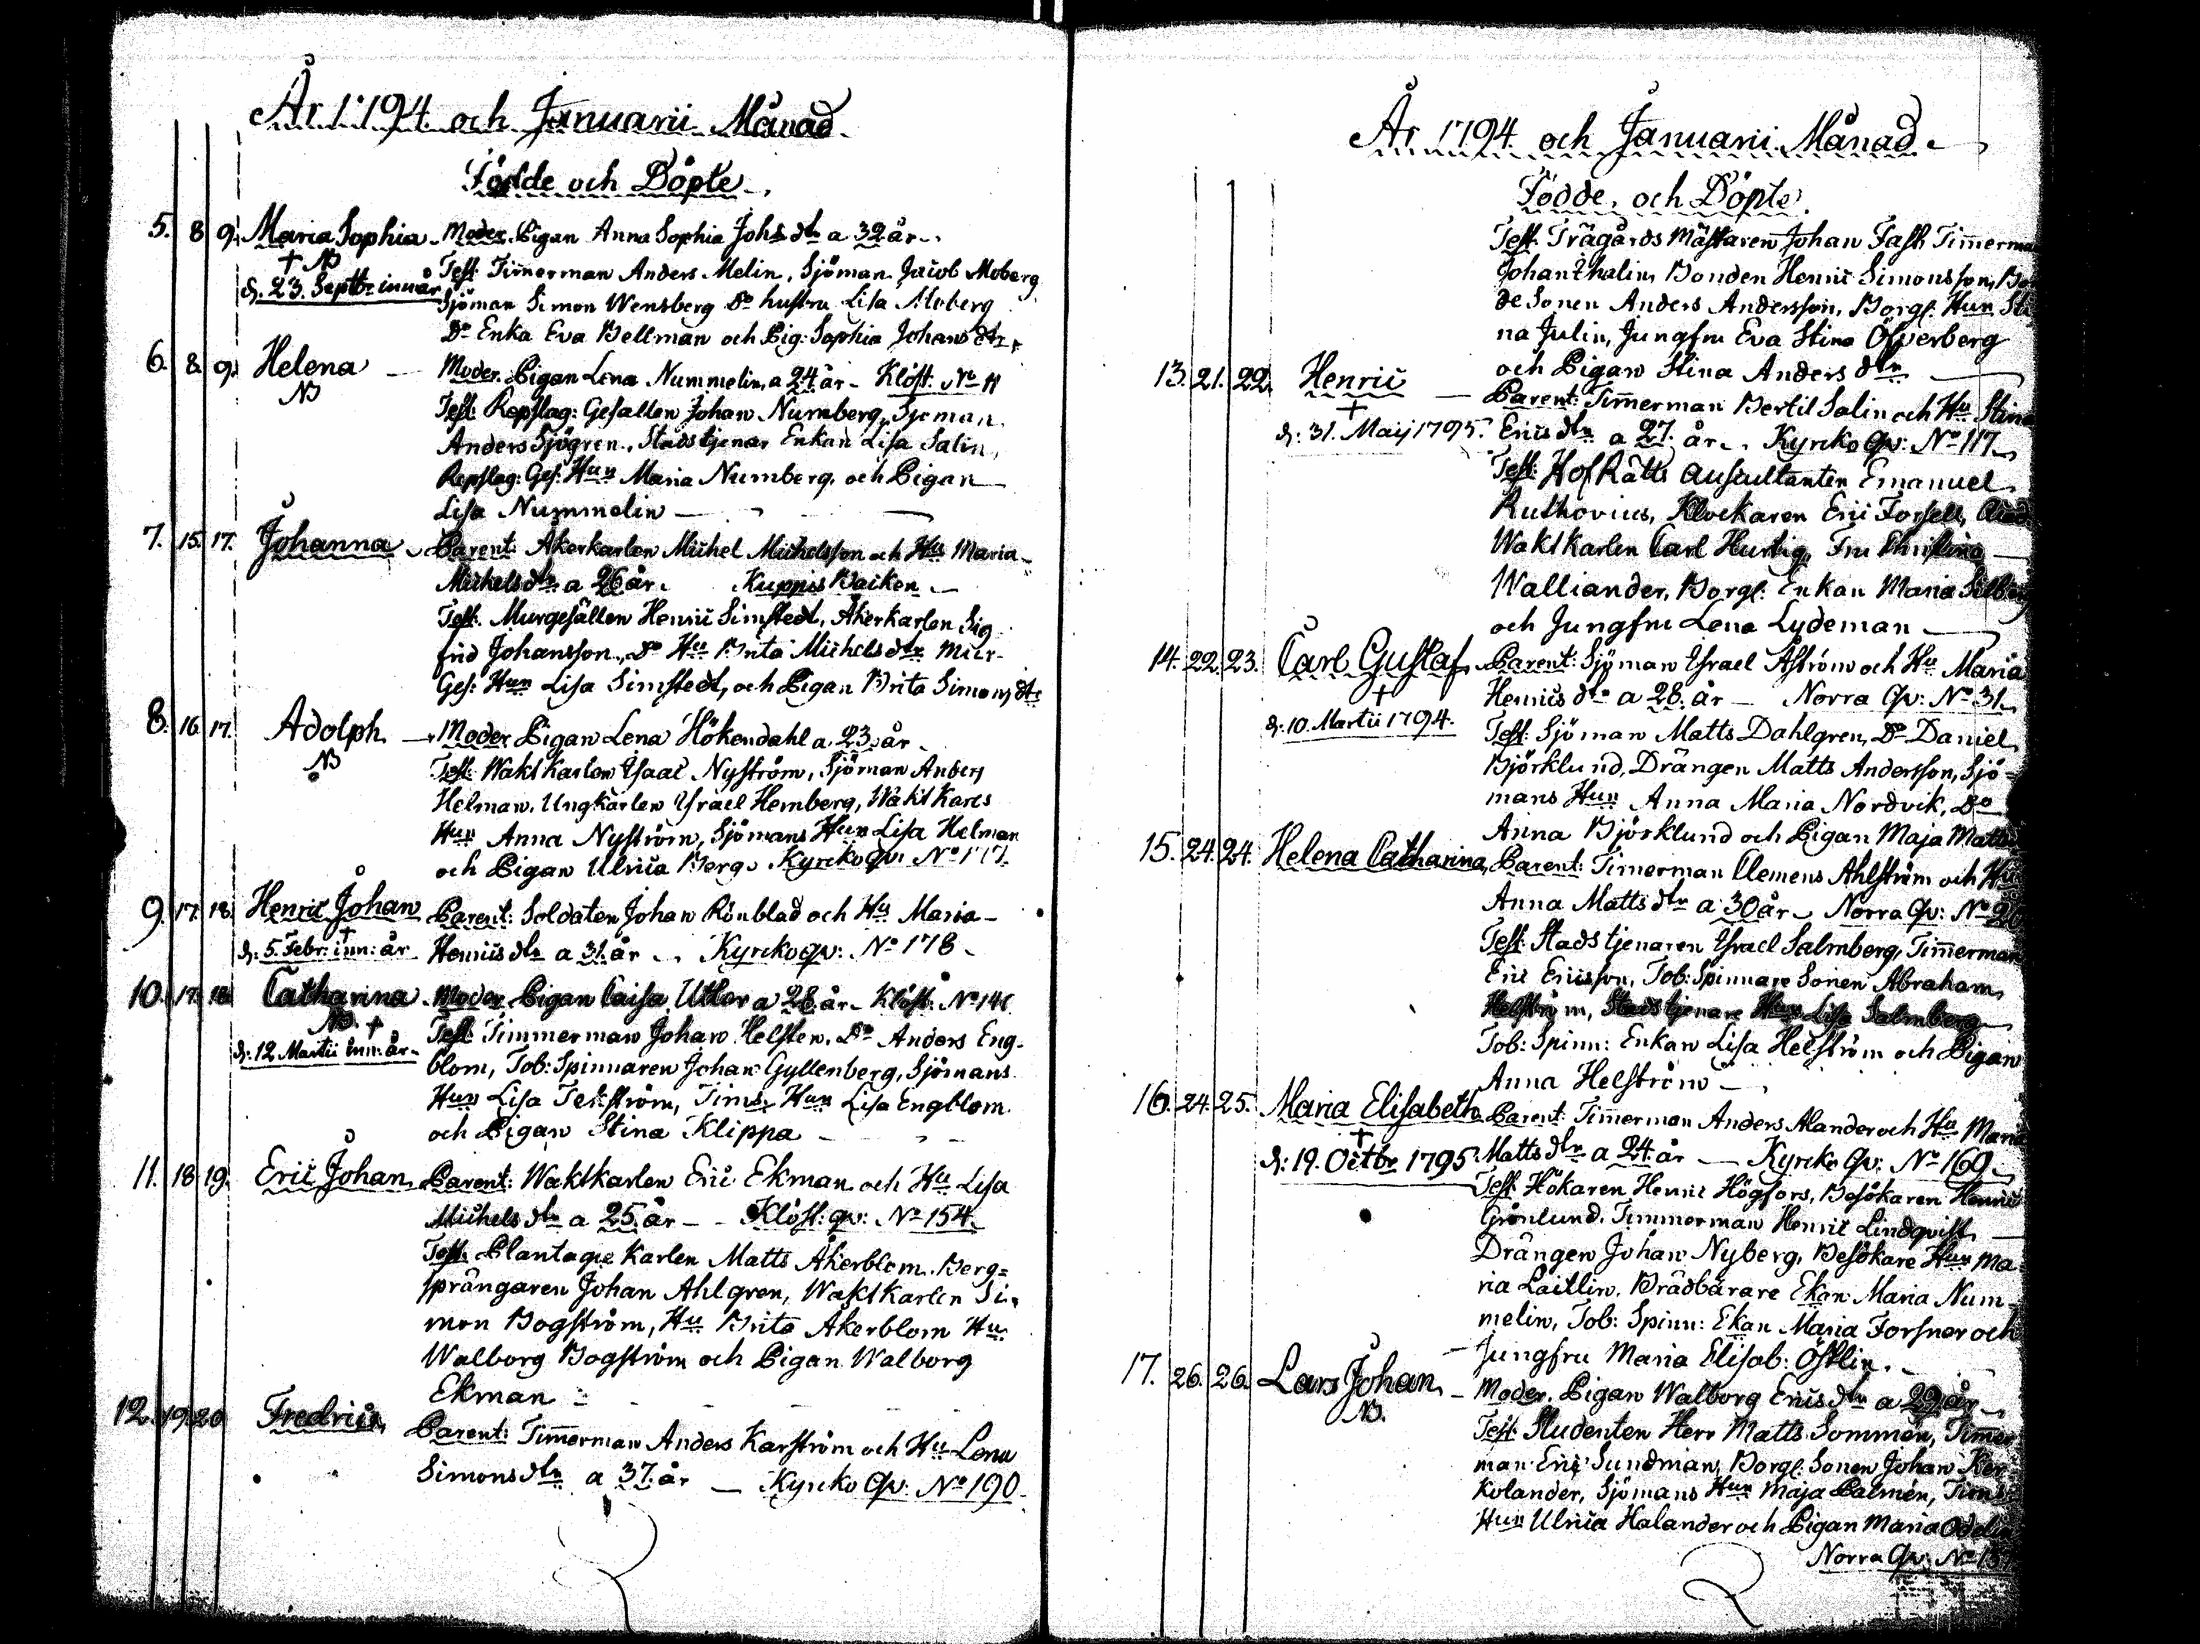 År 1794. och Januarii Månad.
Födde och Döpte.
5. 8 9. Maria Sophia. Moder. Pigan Anna Sophia Johs dtr a 32 år.
† NB
Test: Tim̄erman Anders Melin, Sjöman Jacob Moberg
d. 23. Septbr innevar
Sjöman Simon Wensberg Do hustru Lisa Moberg
Do Enka Eva Bellman och Pig: Sophia Johans dtr.
6. 8. 9. Helena — Moder. Pigan Lena Nummelin, a 24 år – Klöst. No 11
NB
Test: Repslag: Gesällen Johan Nurnberg, Sjöman
Anders Sjögren, Stadstjenar Enkan Lisa Salin,
Repslag: Ges: Hun Maria Nurnberg, och Pigan
Lisa Nummelin —
7. 15. 17. Johanna Parent: Åkerkarlen Michel Michelsson och Hu Maria
Michels dtr a 26 år. Kuppis Backen.
Test. Murgesällen Henric Simstedt, Åkerkarlen Sig
frid Johansson, Do Hu Brita Michels dtr Mur-
Ges: Hun Lisa Simstedt, och Pigan Brita Simons dtr
8. 16. 17. Adolph — Moder Pigan Lena Hökendahl a 23 år.
NB
Test: Waktkarlen Isaac Nyström, Sjöman Anders
Helman, Ungkarlen Israel Hemberg, Wakt Karls
Hun Anna Nyström, Sjömans Hun Lisa Helman
och Pigan Ulrica Berg. Kyrcko qv: No 177.
9. 17. 18. Henric Johan Parent: Soldaten Johan Rönblad och Hu Maria –
†
d: 5. Febr: inn: år. Henrics dtr a 31. år. Kyrcko qv: No 178.
10. 17. 18. Catharina Moder Pigan Caisa Utter a 28 år – Klöst: No 146
NB. †
Test: Timmerman Johan Helsten, Do Anders Eng-
d: 12 Martii inn: år.
blom, Tob: Spinnaren Johan Gyllenberg, Sjömans
Hun Lisa Tekström, Tims: Hun Lisa Engblom
och Pigan Stina Klippa
11. 18 19. Eric Johan. Parent: Waktkarlen Eric Ekman och Hu Lisa
Michels dtr a 25. år – Klöst: qv: No 154.
Test. Plantage Karlen Matts Åkerblom. Berg=
sprängaren Johan Ahlgren, Waktkarlen Si-
mon Bogström, Hu Brita Åkerblom Hu
Walborg Bogström och Pigan Walborg
Ekman
12. 19. 20 Fredric, Parent: Tim̄erman Anders Karström och Hu Lena
Simons dtr a 37. år — Kyrcko Qv: No 190.
År 1794. och Januarii Månad.
Födde, och Döpte.
Test. Trägårds Mästaren Johan Fast Tim̄erma
Johan Thalin, Bonden Henric Simonsson, Bo
de Sonen Anders Andersson, Borgl: Hun Sti
na Julin, Jungfru Eva Stina Öfverberg
och Pigan Stina Anders dtr
13. 21. 22. Henric — Parent: Tim̄erman Bertil Salin och Hu Stina
†
d: 31. Maij 1795. Erics dtr a 27. år. Kyrcko Qv: No 117.
Test: Hof Rätts Auscultanten Emanuel
Ruthovius, Klockaren Eric Forsell,
Waktkarlen Carl Hurtig, Fru Christina
Walliander, Borgl: Enkan Maria
och Jungfru Lena Lydeman —
14. 22. 23. Carl Gustaf Parent: Sjöman Israel Åström och Hu Maria
†
Henrics dtr a 28. år — Norra Qv: No 31.
d: 10. Martii 1794.
Test: Sjöman Matts Dahlgren, Do Daniel
Björklund, Drängen Matts Andersson, Sjö=
mans Hun Anna Maria Nordvik, Do
Anna Björklund och Pigan Maja Matts
15. 24. 24. Helena Catharina, Parent: Timerman Clemens Ahlström och Hu
Anna Matts dtr a 30 år – Norra Qv: No
Test: Stadstjenaren Israel Salmberg, Tim̄erman
Eric Ericsson, Tob: Spinnare Sonen Abraham
Helström, Stadstjenare Hun Lisa Salmberg
Tob: Spinn: Enkan Lisa Helström och Pigan
Anna Helström —
16. 24. 25. Maria Elisabeth Parent: Tim̄erman Anders Alander och Hu Maria
†
d: 19. Octbr 1795. Matts dtr a 24. år — Kyrcko Qv: No 169
Test: Hökaren Henric Högfors, Besökaren Henric
Grönlund, Timmerman Henric Lindqvist
Drängen Johan Nyberg, Besökare Hun Ma
ria Laitlin, Brädbärare Ekan Maria Num-
melin, Tob: Spinn: Ekan Maria Forsner och
Jungfru Maria Elisab: Östlin.
17. 26. 26. Lars Johan – Moder. Pigan Walborg Erics dtr a 29 år
NB.
Test: Studenten Herr Matts Sommén, Tim̄er
man Eric Sundman, Borgl: Sonen Johan Ker
kolander, Sjömans Hun Maja Palmén, Tims:
Hun Ulrica Halander och Pigan Maria Odelin
Norra Qv: No